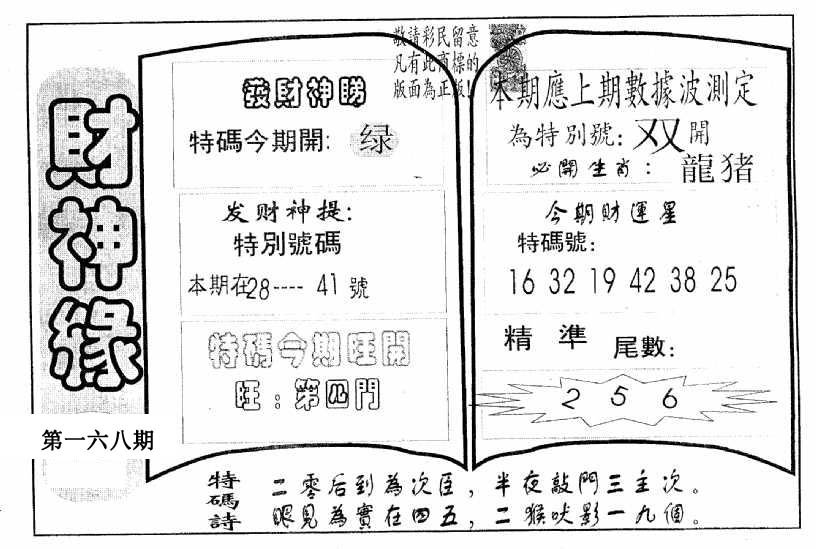 財神緣
第一六八期
敬請彩民留意
凡有此商標的
版面為正版!
發財神睇
特碼今期開: 绿
发财神提:
特別號碼
本期在28---- 41 號
特碼今期旺開
旺:第四門
本期應上期數據波測定
為特別號: 双 開
必開生肖: 龍猪
今期財運星
特碼號:
16 32 19 42 38 25
精 準 尾數:
2 5 6
特碼詩
二零后到為次臣,半夜敲門三主次。
眼見為實在四五,二猴吠影一九個。